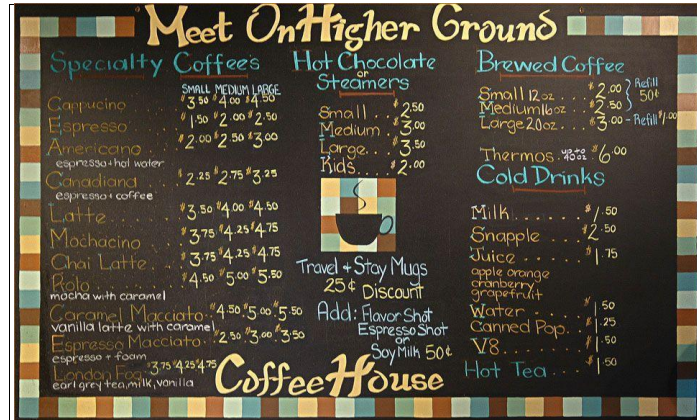 Meet On Higher Ground
Specialty Coffees
SMALL MEDIUM LARGE
Cappucino $3.50 $4.00 $4.50
Espresso $1.50 $2.00 $2.50
Americano $2.00 $2.50 $3.00
espresso+hot water
Canadiana $2.25 $2.75 $3.25
espresso+coffee
Latte $3.50 $4.00 $4.50
Mochacino $3.75 $4.25 $4.75
Chai Latte $3.75 $4.25 $4.75
Rolo $4.50 $5.00 $5.50
mocha with caramel
Caramel Macciato $4.50 $5.00 $5.50
vanilla latte with caramel
Espresso Macciato $2.50 $3.00 $3.50
espresso + foam
London Fog $3.75 $4.25 $4.75
earl grey tea, milk, vanilla
Hot Chocolate
or
Steamers
Small.... $2.50
Medium.. $3.00
Large... $3.50
Kids.... $2.00
Travel + Stay Mugs
25¢ Discount
Add: Flavor Shot
Espresso Shot
or
Soy Milk 50¢
Coffee House
Brewed Coffee
Small 12oz... $2.00 Refill
Medium 16oz.. $2.50 50¢
Large 20oz... $3.00 - Refill $1.00
Thermos. up to 40oz $6.00
Cold Drinks
Milk...... $1.50
Snapple... $2.50
Juice..... $1.75
apple orange
cranberry
grapefruit
Water.... $.50
Canned Pop.. $1.25
V8....... $1.50
Hot Tea... $1.50